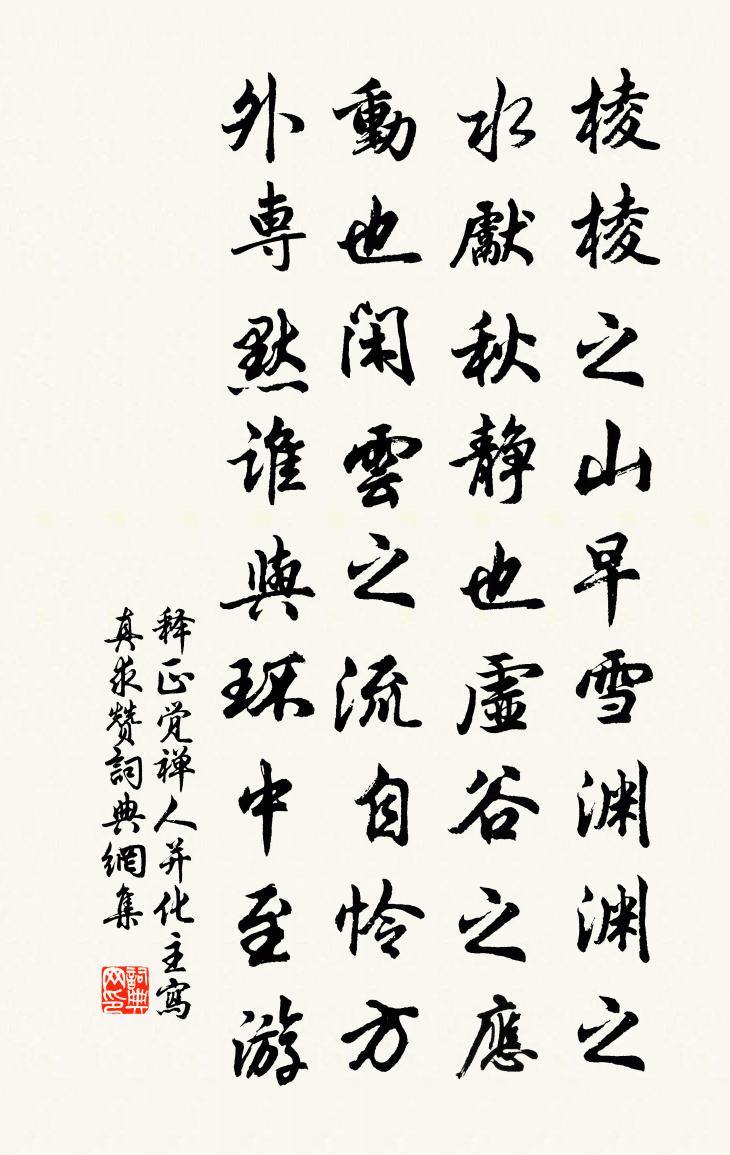 棱棱之山早雪渊渊之
水獻秋静也虛谷之應
動也閑雲之流自怜方
外専黙谁與環中至游
释正觉禅人并化主寫
真求赞詞典網集
詞典网印